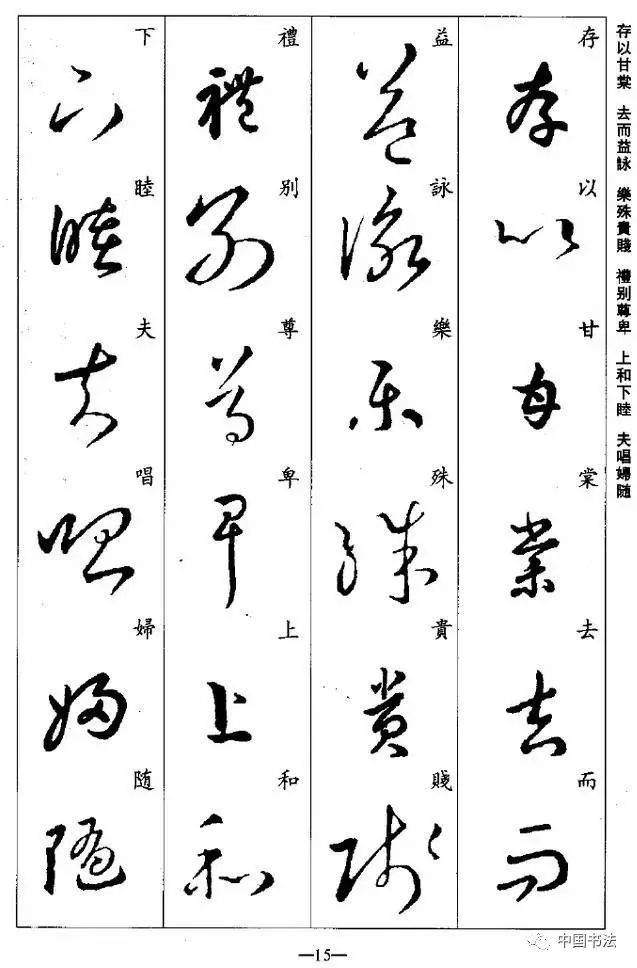 存以甘棠 去而益詠 樂殊貴賤 禮別尊卑 上和下睦 夫唱婦随
存以甘棠去而
益詠樂殊貴賤
禮別尊卑上和
下睦夫唱婦随
—15—
中国书法